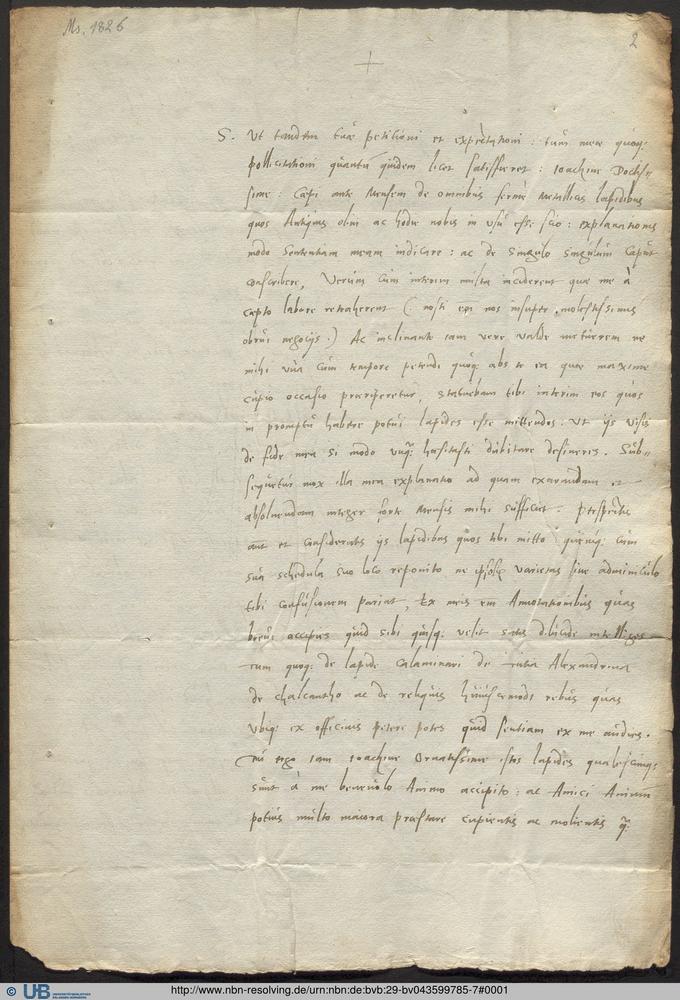 Ms. 1826
2
S. Ut tandem tuae petitioni et expectationi: tum meae quoq:
pollicitationi quantu quidem licet satisfieret: Ioachime Doctis-
sime: Caepi ante Mensem de omnibus ferme metallicis lapidibus
quos Antiquis olim ac hodie nobis in usu esse scio: explanationis
modo sententiam meam indicare: ac de singulo singulum caput
conscribere, Verum cum interim multa inciderent quae me à
caepto labore retraherent (: nosti em nos insuper molestissimis
obrui negocijs.) Ac inclinante iam vere valde metuerem ne
mihi una cum tempore petendi quoq: abs te ea quae maxime
cupio occasio praeriperetur, statuebam tibi interim eos quos
in promptu habere potui lapides esse mittendos. Ut ijs visis
de fide mea si modo unq: haesitasti dubitare desineres. Sub-
sequetur mox illa mea explanatio ad quam exarandam et
absolvendam integer forte Mensis mihi sufficiet. perspectis
aut et consideratis ijs lapidibus quos tibi mitto quenq: cum
sua schedula suo loco reponito ne ipsorum varietas sine adminiculo
tibi confusionem pariat, Ex meis em Annotationibus quas
brevi accipies quid sibi quisq. velit satis dilucide intelliges
tum quoq: de lapide Calaminari de tutia Alexandrina
de chalcantho ac de reliquis huiuscemodi rebus quas
ubiq: ex officinis petere potes quid sentiam ex me audies.
Tu ergo iam Ioachime Ornatissime istos lapides qualescunq;
sunt à me benevolo Animo accipito: ac Amici Animum
potius multo maiora praestare cupientis ac molientis q:
© UB
http://www.nbn-resolving.de/urn:nbn:de:bvb:29-bv043599785-7#0001